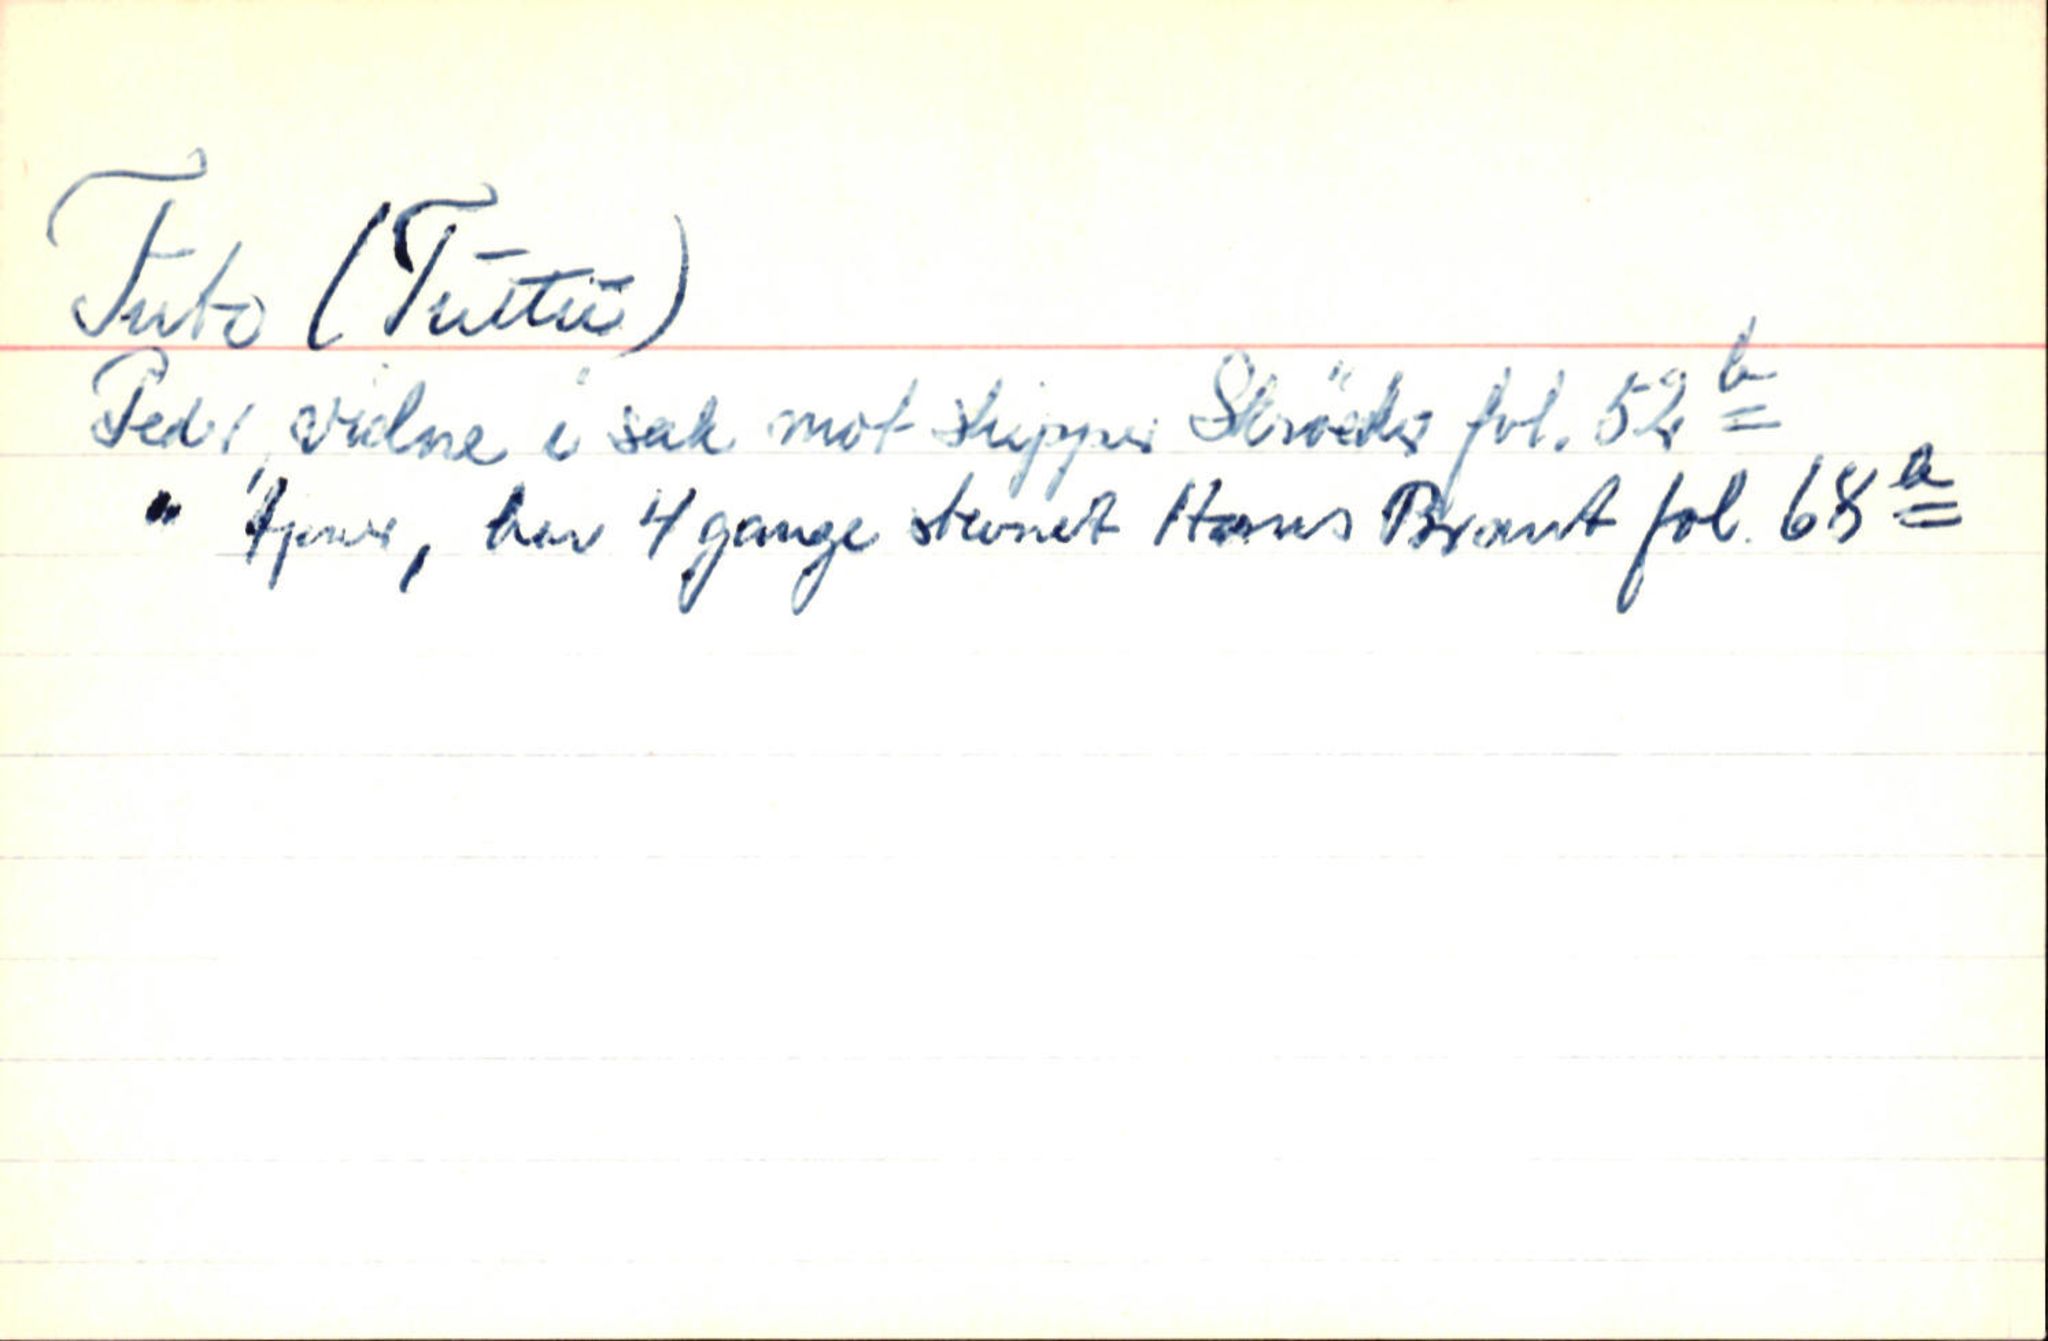 Tuto (Tüttü)
Peder, vidne i sak mot skipper Skröder fol. 52 b
" tjener, har 4 gange stevnet Hans Brant fol. 68 a